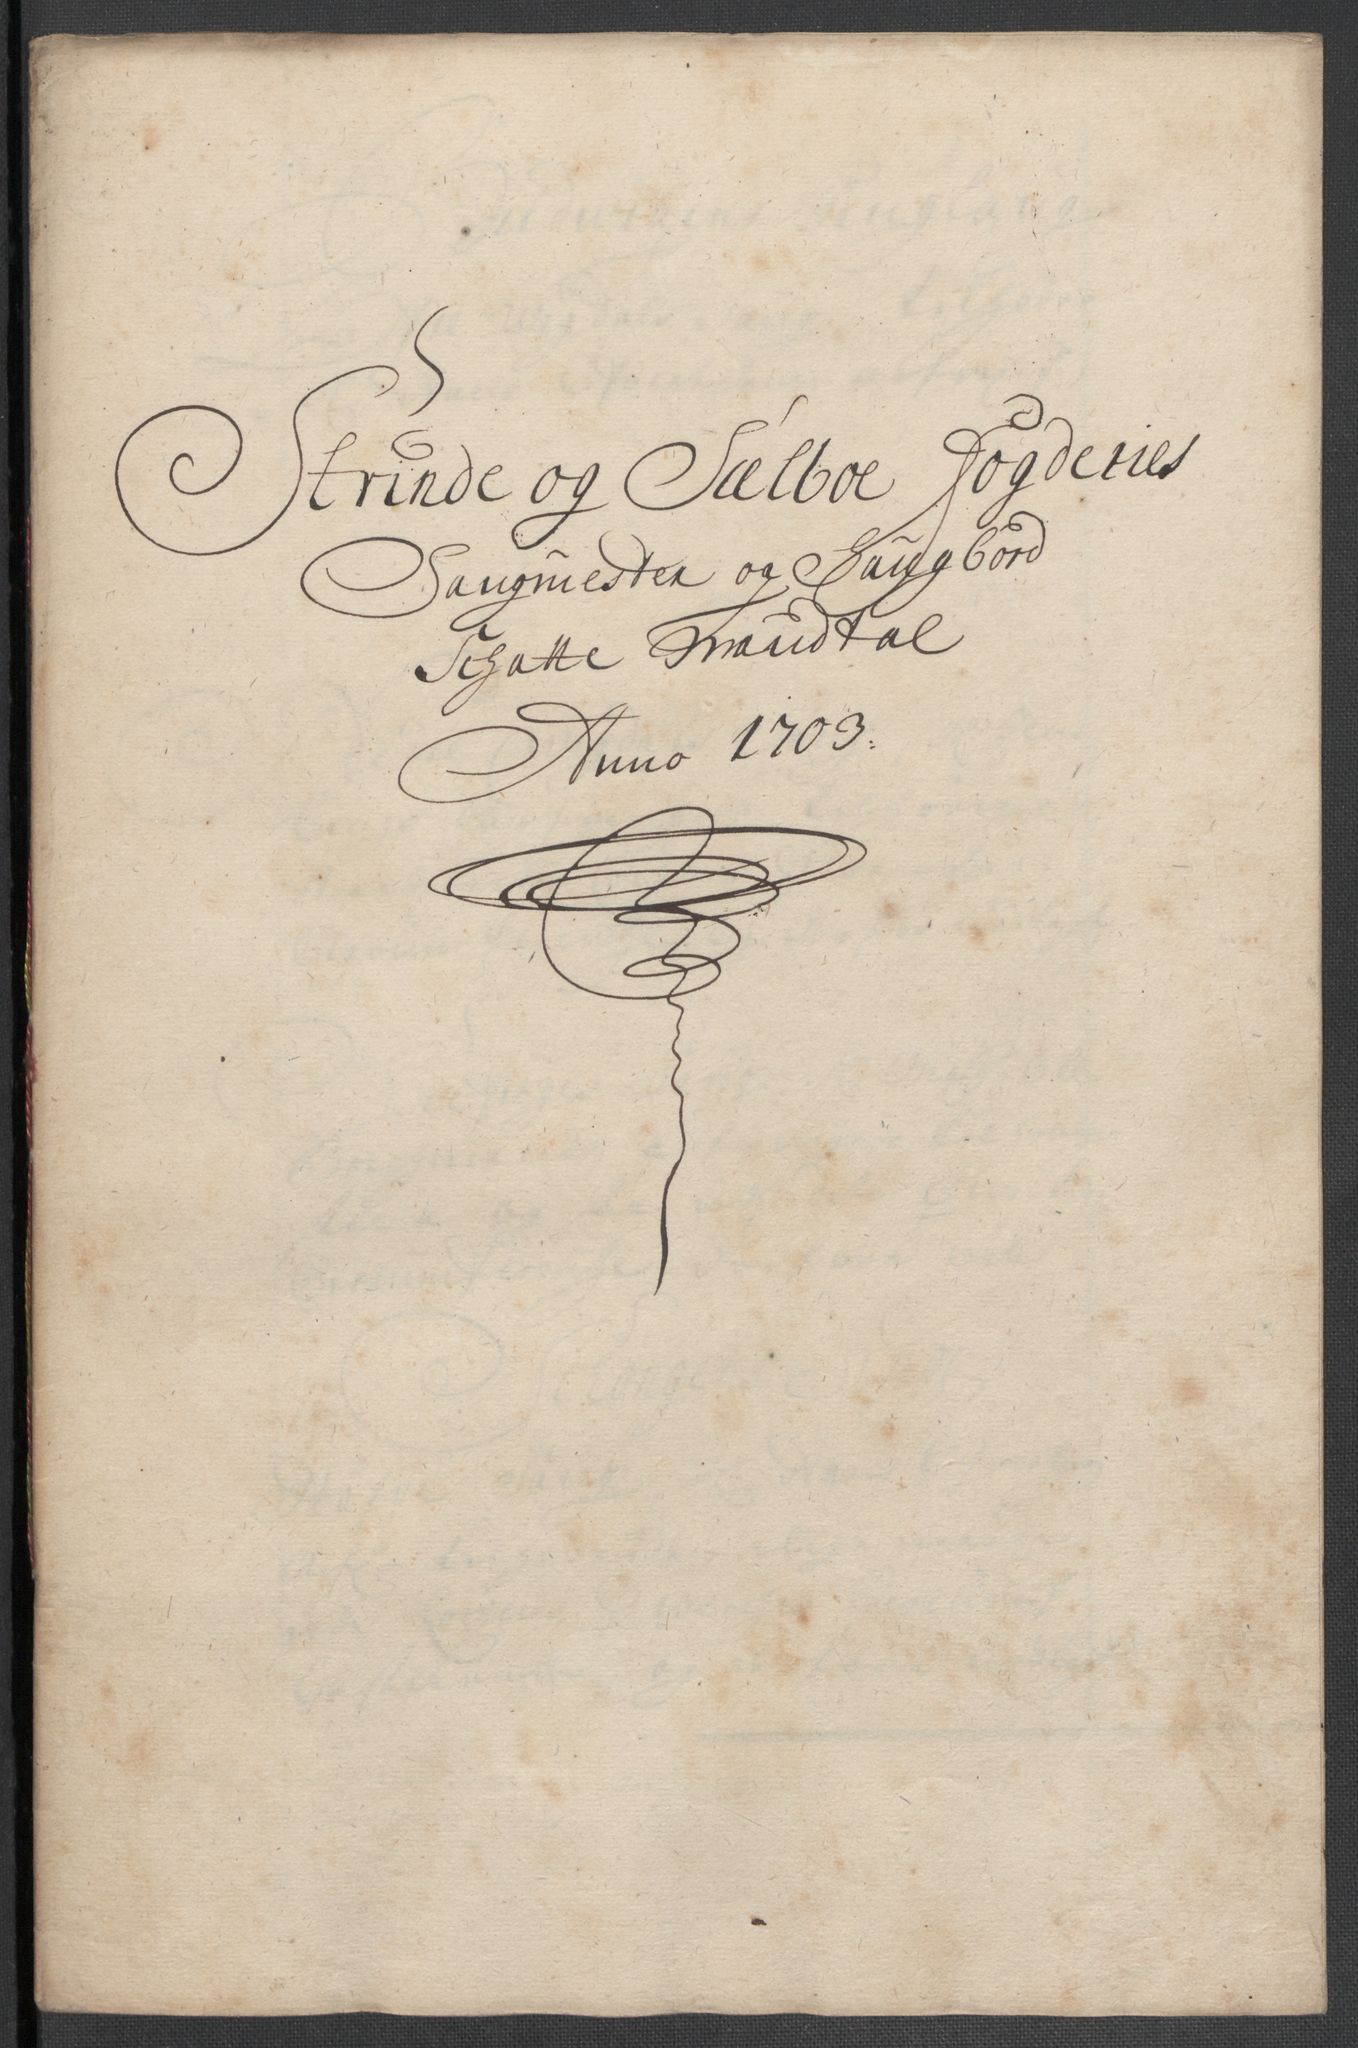 Strinde og Sælboe Fogderies
Saugmester og Saugbord
Schatte Mandtal
Anno 1703.